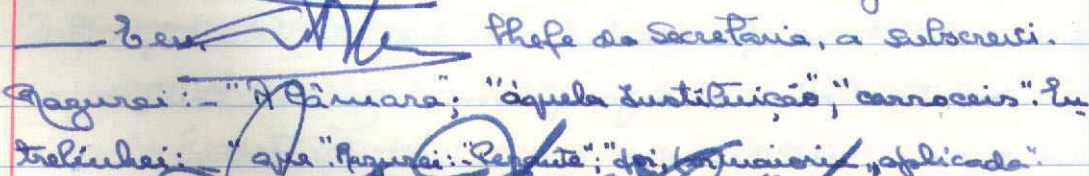 Eu, Chefe da Secretaria, a subscrevi.
Razurei:-"A Câmara"; "àquela Instituição", "carroceis". En
trelinhei:- "que". Razurei: "Perante"; "foi, por maioria, aplicada".